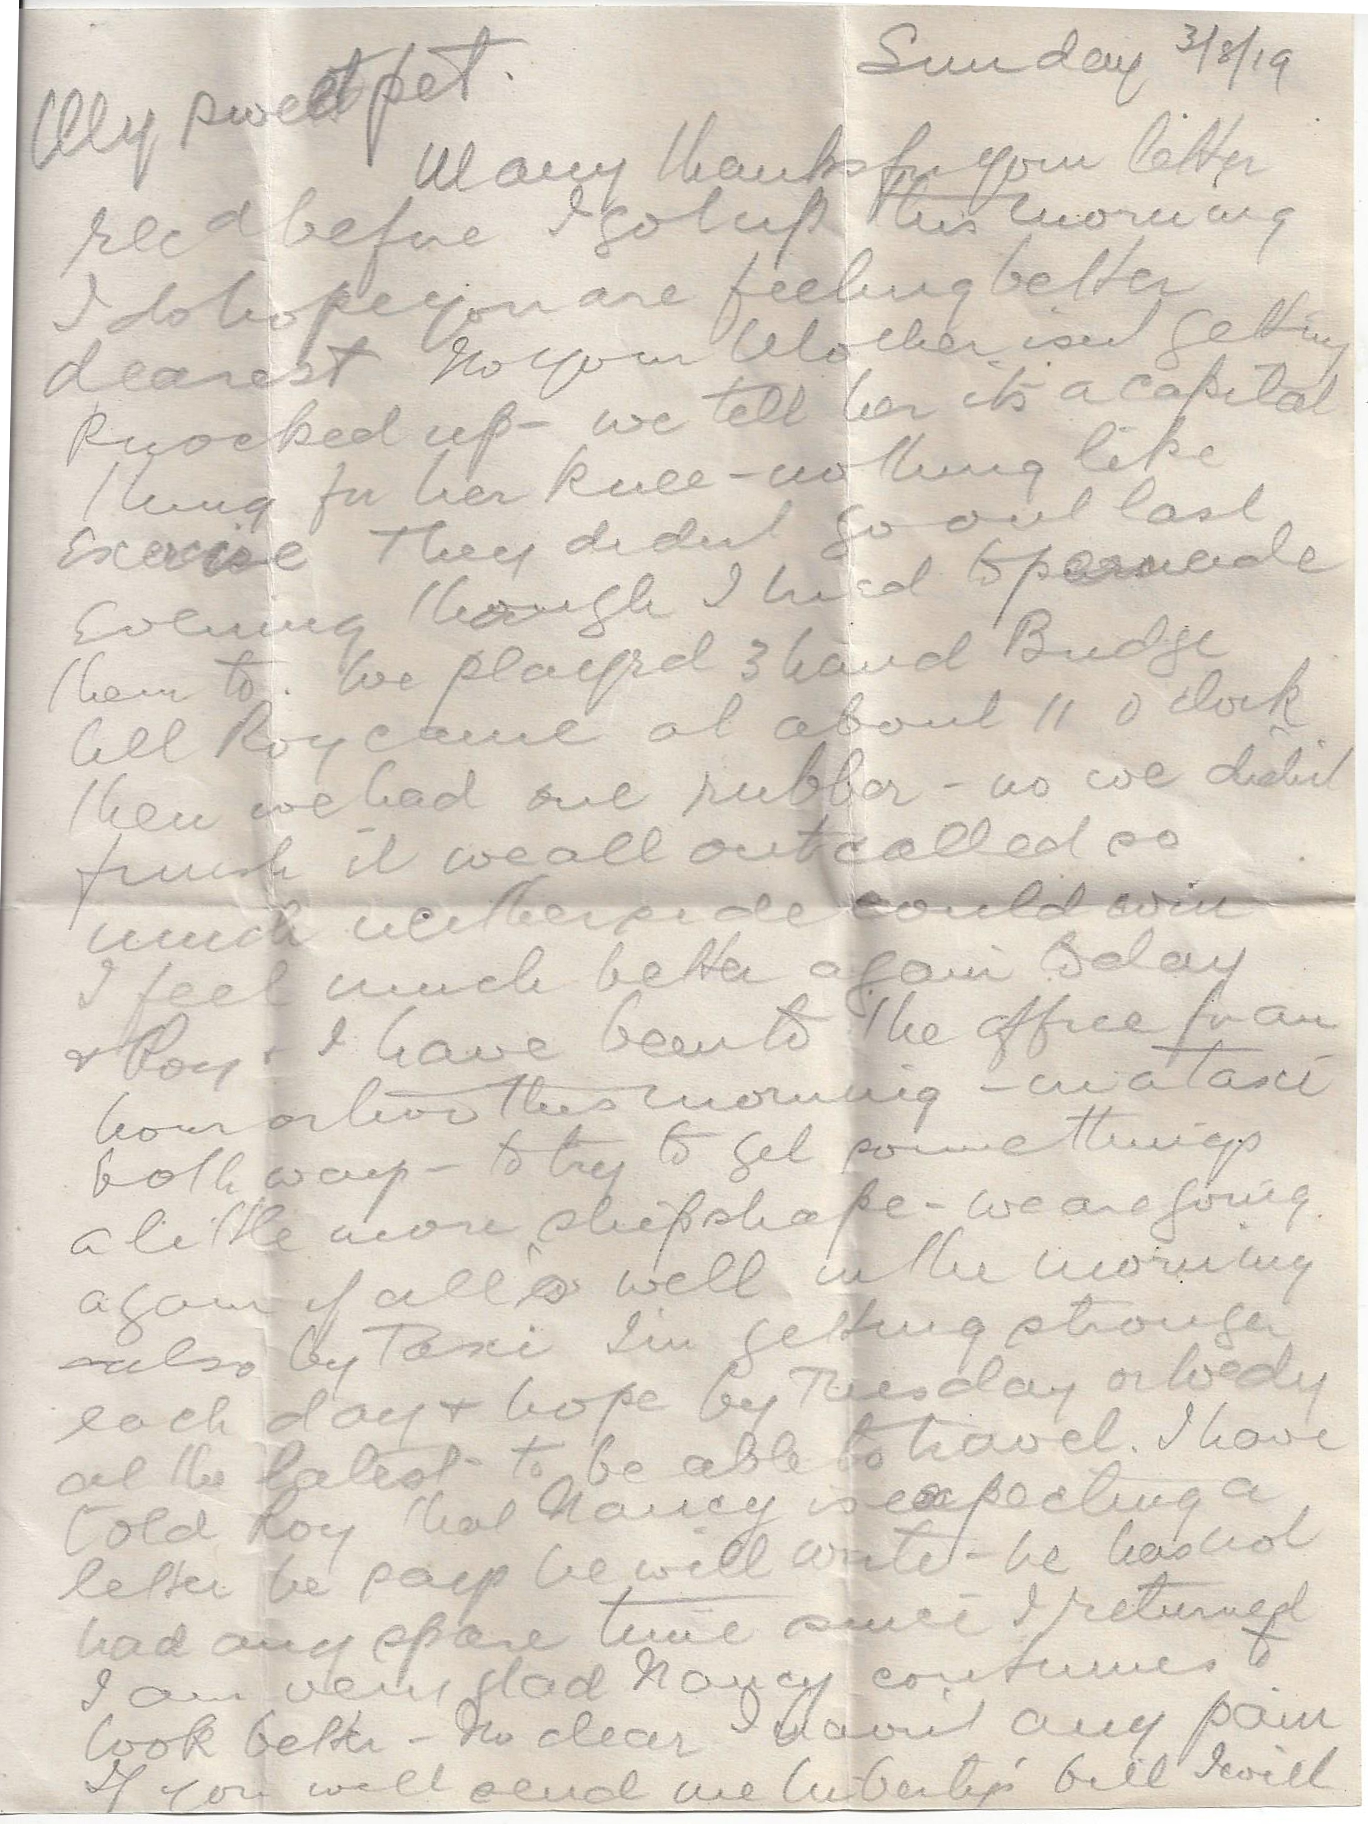 Sunday 3/8/19
My sweet pet.
Many thanks for your letter
recd before I got up this morning
I do hope you are feeling better
dearest No your Mother isnt getting
knocked up - we tell her its a capital
thing for her knee - nothing like
exercise They didnt go out last
Evening though I tried to persuade
them to. We played 3 hand Bridge
till Roy came at about 11 o clock
then we had one rubber - no we didnt
finish it we all outcalled so
much neither side could win
I feel much better again today
& Roy & I have been to the office for an
hour or two this morning - in a taxi
both ways - to try to get some things
a little more shipshape - we are going
again if all is well in the morning
also by Taxi Im getting stronger
each day & hope by Tuesday or Wedy
at the latest to be able to travel. I have
told Roy that Nancy is expecting a
letter he says he will write - he has not
had any spare time since I returned
I am very glad Nancy continues to
look better - No dear I havnt any pain
If you will send me Liberty's bill I will